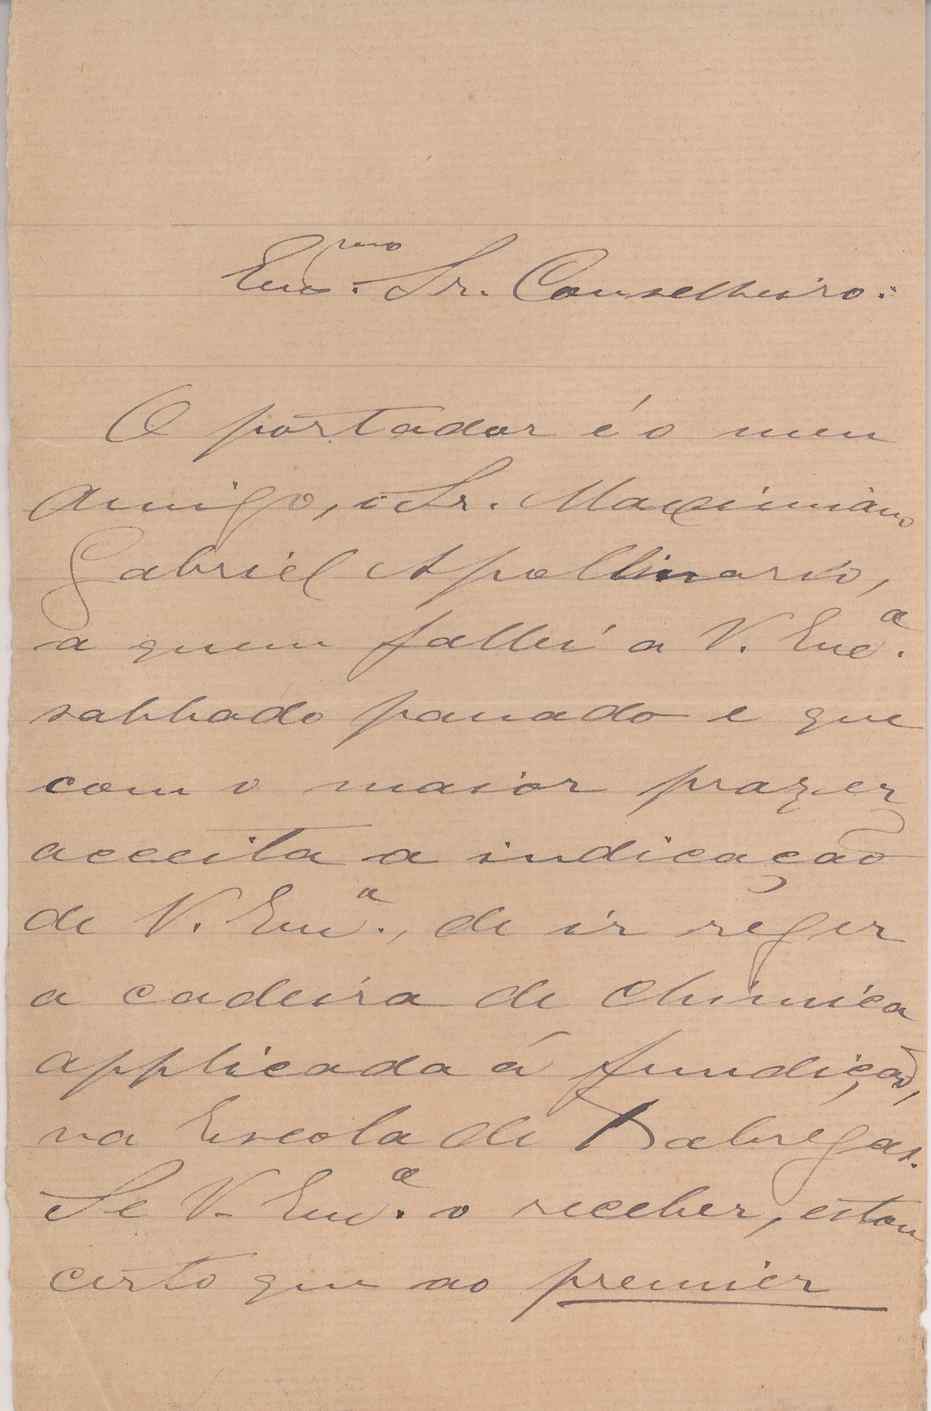 Exmo. Sr. Conselheiro:
O portador é o meu
amigo, o Sr. Maximiano
Gabriel Apollinario,
a quem fallei a V. Exca.
sabbado passado e que
com o maior prazer
acceita a indicação
de V. Exa., de ir reger
a cadeira de chimica
applicada á fundição,
na Escola de Xabregas.
Se V. Exa. o receber, estou
certo que ao premier